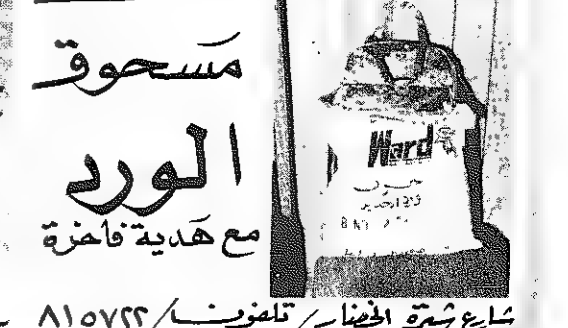 مسحوق
الورد
مع هدية فاخرة
Ward
شارع شبرة الخضار / تلفون / ٨١٥٧٢٢